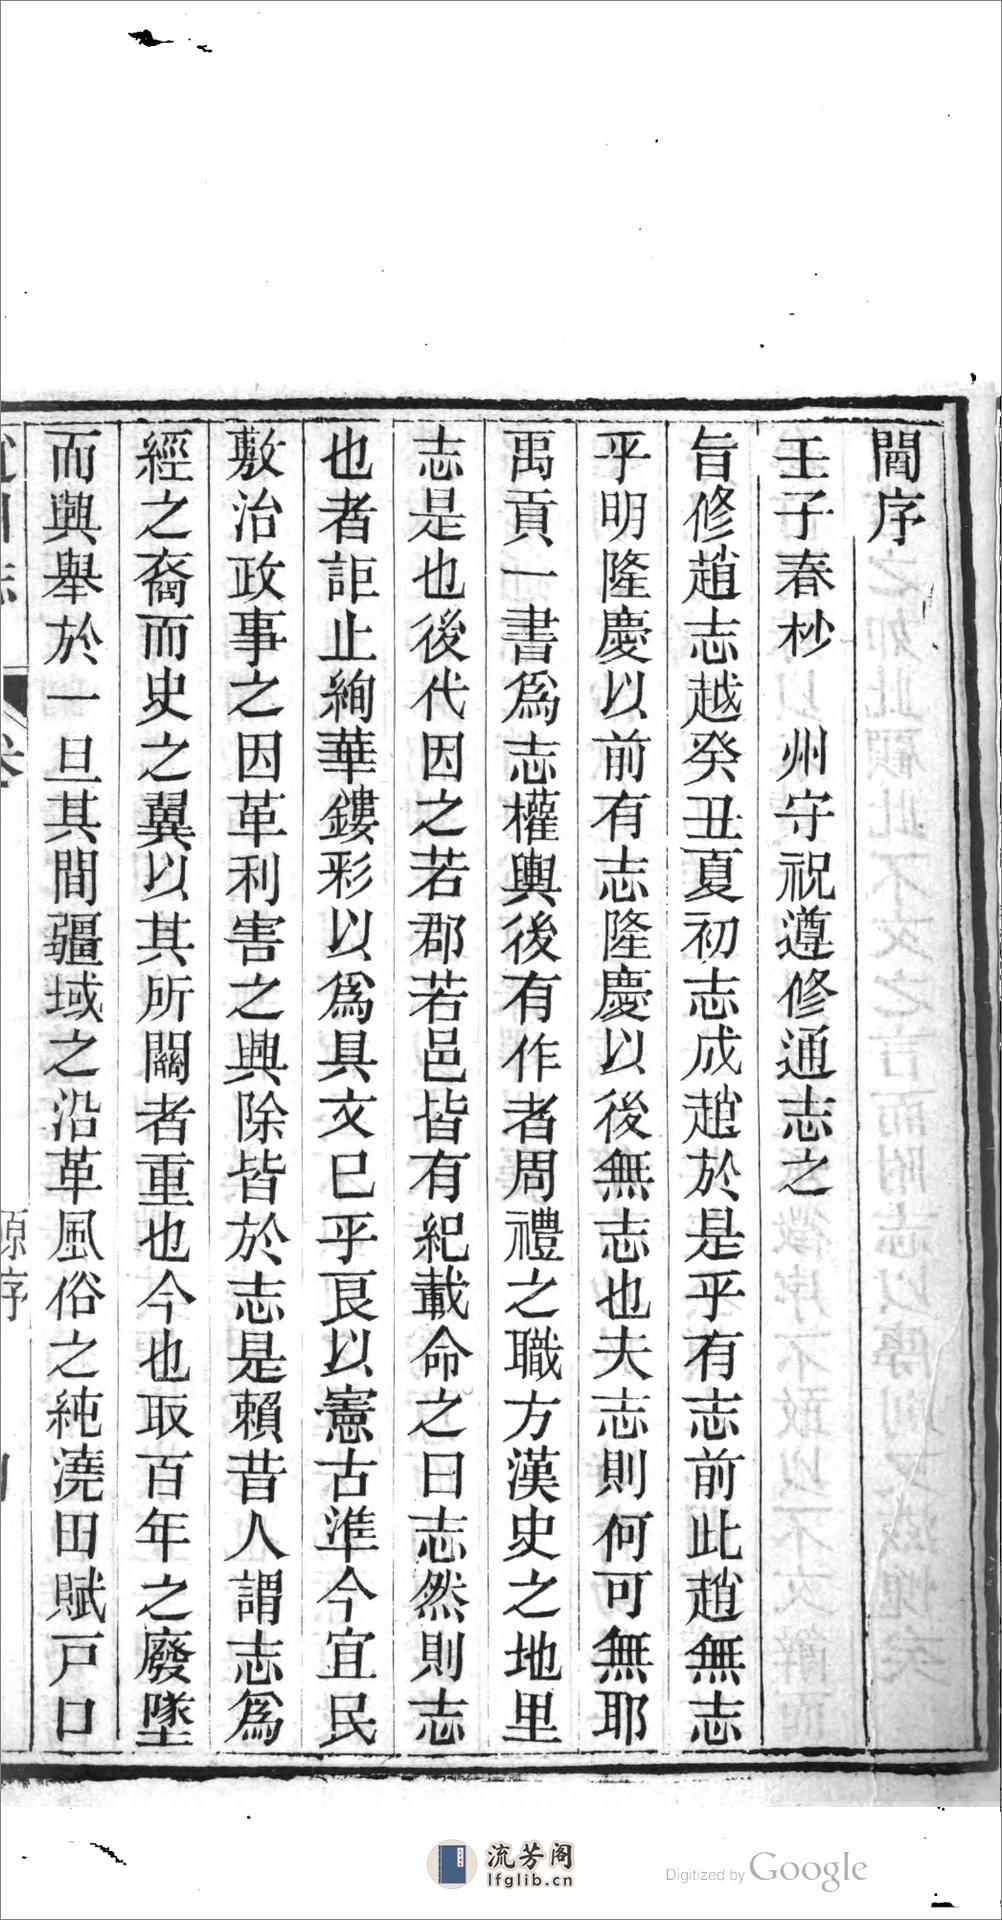 閻序
壬子春杪　州守祝遵修通志之
旨修趙志越癸丑夏初志成趙於是乎有志前此趙無志
乎明隆慶以前有志隆慶以後無志也夫志則何可無耶
禹貢一書爲志權輿後有作者周禮之職方漢史之地里
志是也後代因之若郡若邑皆有紀載命之曰志然則志
也者詎止絢華鏤彩以爲具文已乎良以憲古準今宜民
敷治政事之因革利害之興除皆於志是賴昔人謂志爲
經之裔而史之翼以其所關者重也今也取百年之廢墜
而興舉於一旦其間疆域之沿革風俗之純澆田賦戸口
原序
流芳阁
lfglib.cn
Digitized by Google